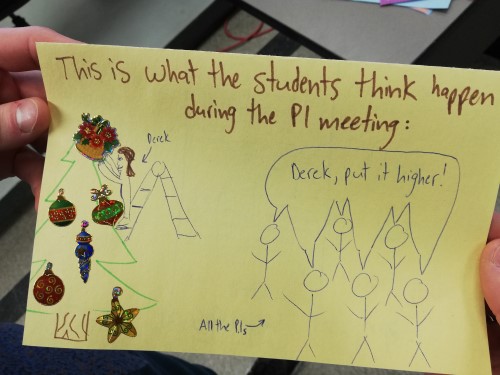 This is what the students think happen
during the PI meeting:
Derek
Derek, put it higher!
All the PIs